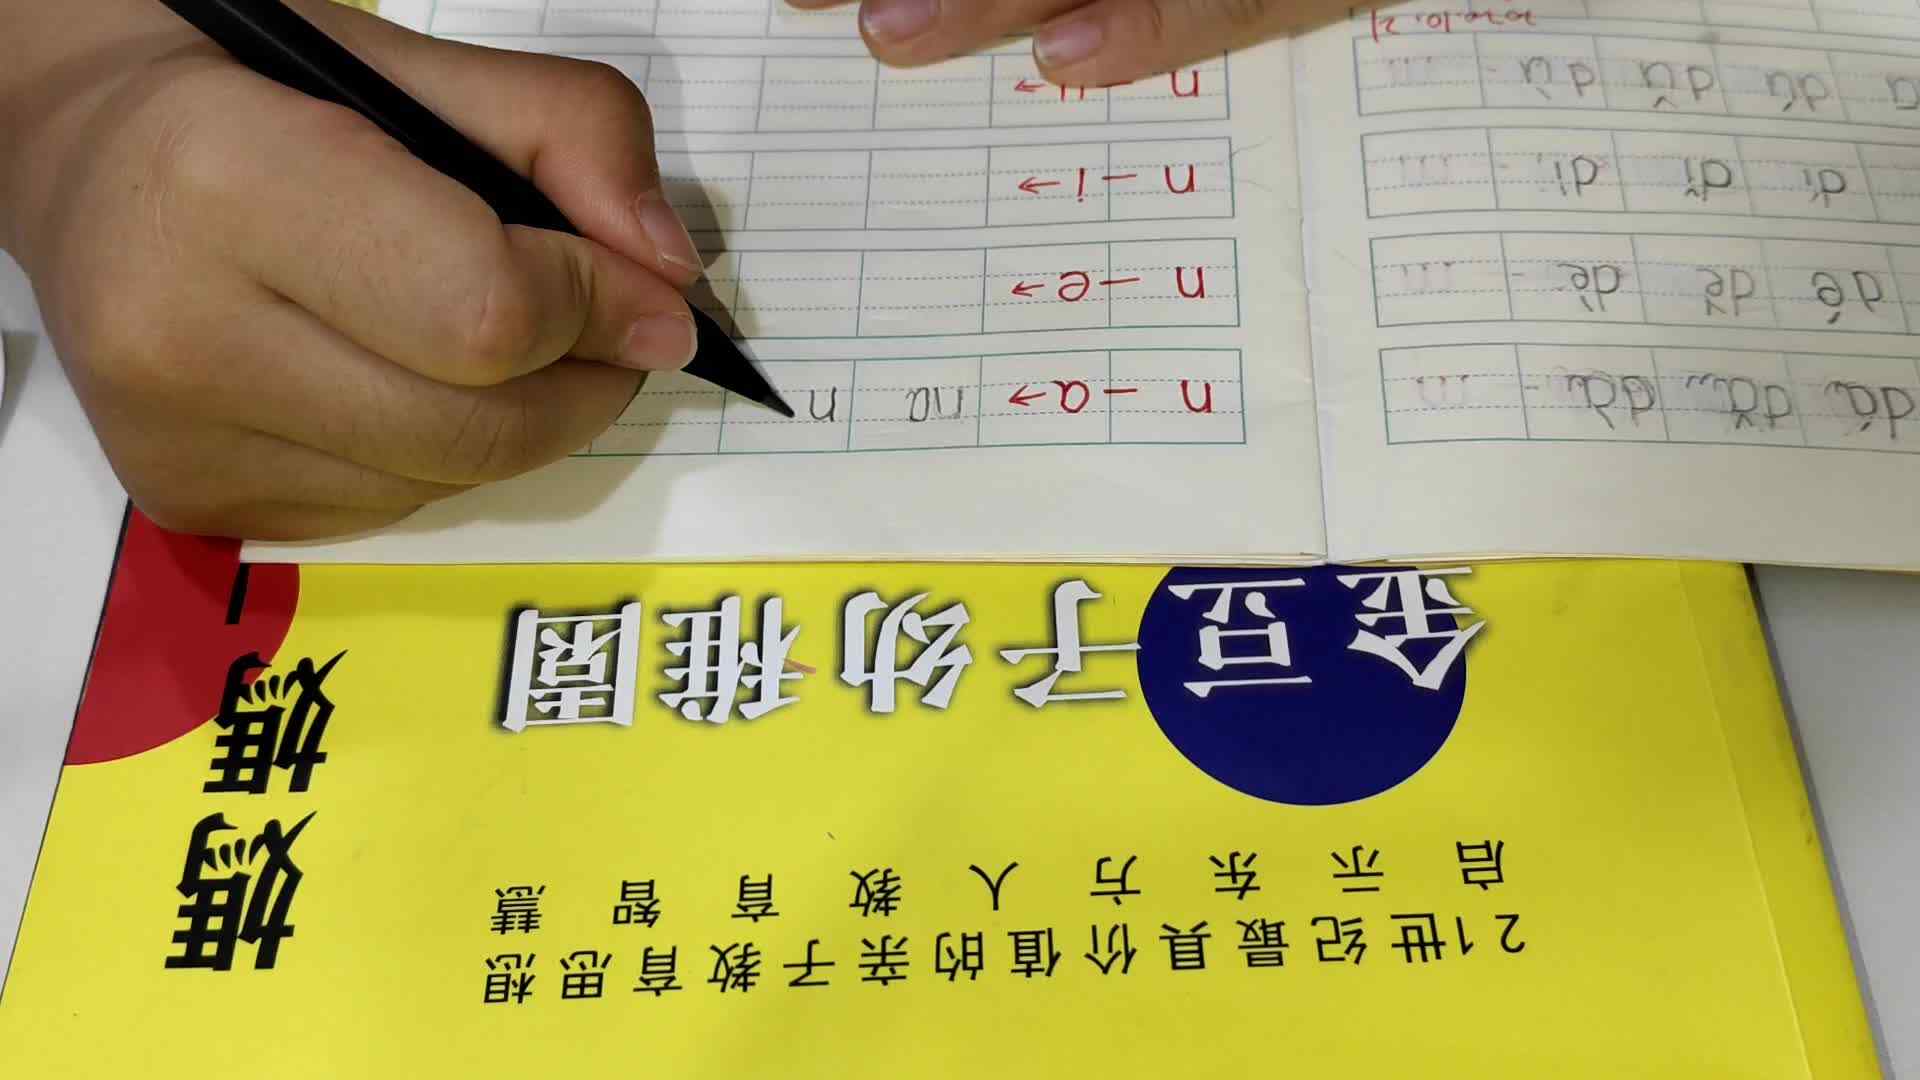 21世纪最具价值的亲子教育思想
启示东方人教育智慧
金豆子幼稚園
媽媽
dá dǎ dà
dé dě dè
dí dǐ dì
dú dǔ dù
2020.10.21
n－a→ na n
n－e→
n－i→
n－u→